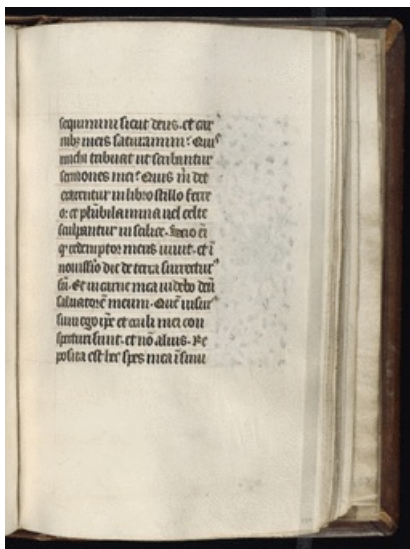 sequimini sicut deus. et car
nibꝫ meis saturamini? Quis
michi tribuat ut scribantur
sermones mei? Quis m̄ det
exarentur in libro stillo ferre
o: et plūbi lamina uel celte
sculpantur in silice. Scio eī
qꝫ redemptor meus uiuit. et ī
nouissīo die de terra surrectur͛
sū. Et in carne mea uidebo deū
saluatorē meum. Quē uisur͛
sum ego ip̄e et oculi mei con
specturi sunt. et nō alius. Re
posita est hec spes mea ī sinu